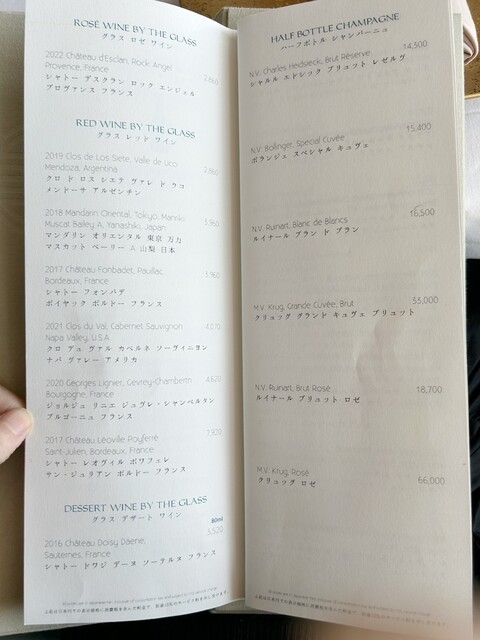 ROSÉ WINE BY THE GLASS
グラス ロゼ ワイン
2022 Château d'Esclan, Rock Angel 2,860
Provence, France
シャトー デスクラン ロック エンジェル
プロヴァンス フランス
RED WINE BY THE GLASS
グラス レッド ワイン
2019 Clos de Los Siete, Valle de Uco 2,860
Mendoza, Argentina
クロ ド ロス シエテ ヴァレ ド ウコ
メンドーサ アルゼンチン
2018 Mandarin Oriental, Tokyo, Manriki
Muscat Bailey A, Yanashiki, Japan
マンダリン オリエンタル 東京 万力
マスカット ベーリー A 山梨 日本
2017 Château Fonbadet, Pauillac 3,960
Bordeaux, France
シャトー フォンバデ
ポイヤック ボルドー フランス
2021 Clos du Val, Cabernet Sauvignon 4,070
Napa Valley, U.S.A.
クロ デュ ヴァル カベルネ ソーヴィニヨン
ナパ ヴァレー アメリカ
2020 Georges Lignier, Gevrey-Chambertin 4,620
Bourgogne, France
ジョルジュ リニエ ジュヴレ・シャンベルタン
ブルゴーニュ フランス
2017 Château Léoville Poyferré
Saint-Julien, Bordeaux, France
シャトー レオヴィル ポワフェレ
サン・ジュリアン ボルドー フランス
DESSERT WINE BY THE GLASS
グラス デザート ワイン
2016 Château Doisy Daëne, 3,520
Sauternes, France
シャトー ドワジ デーヌ ソーテルヌ フランス
HALF BOTTLE CHAMPAGNE
ハーフボトル シャンパーニュ
N.V. Charles Heidsieck, Brut Réserve 14,500
シャルル エドシック ブリュット レゼルヴ
N.V. Bollinger, Special Cuvée 15,400
ボランジェ スペシャル キュヴェ
N.V. Ruinart, Blanc de Blancs 16,500
ルイナール ブラン ド ブラン
M.V. Krug, Grande Cuvée, Brut 55,000
クリュッグ グランド キュヴェ ブリュット
N.V. Ruinart, Brut Rosé 18,700
ルイナール ブリュット ロゼ
M.V. Krug, Rosé 66,000
クリュッグ ロゼ